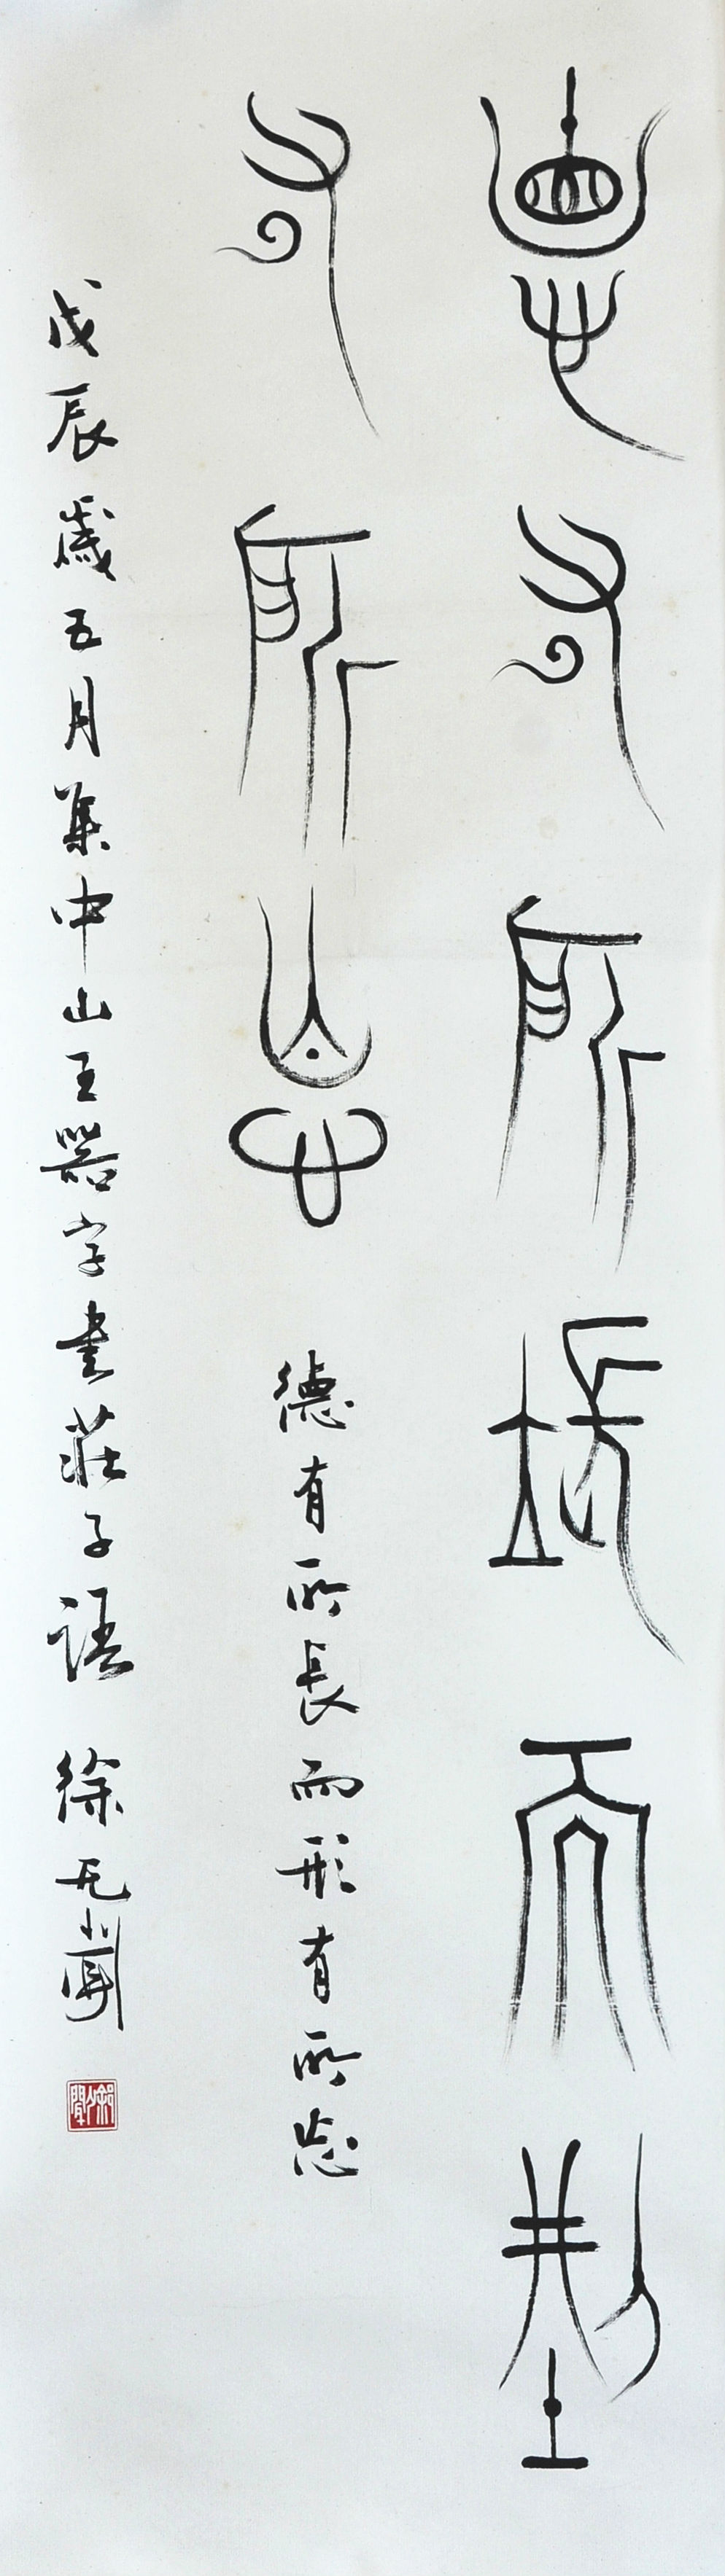 悳又所長而型
又所忘
德有所長而形有所忘
戊辰歲五月集中山王器字書莊子語 徐无聞
徐無聞